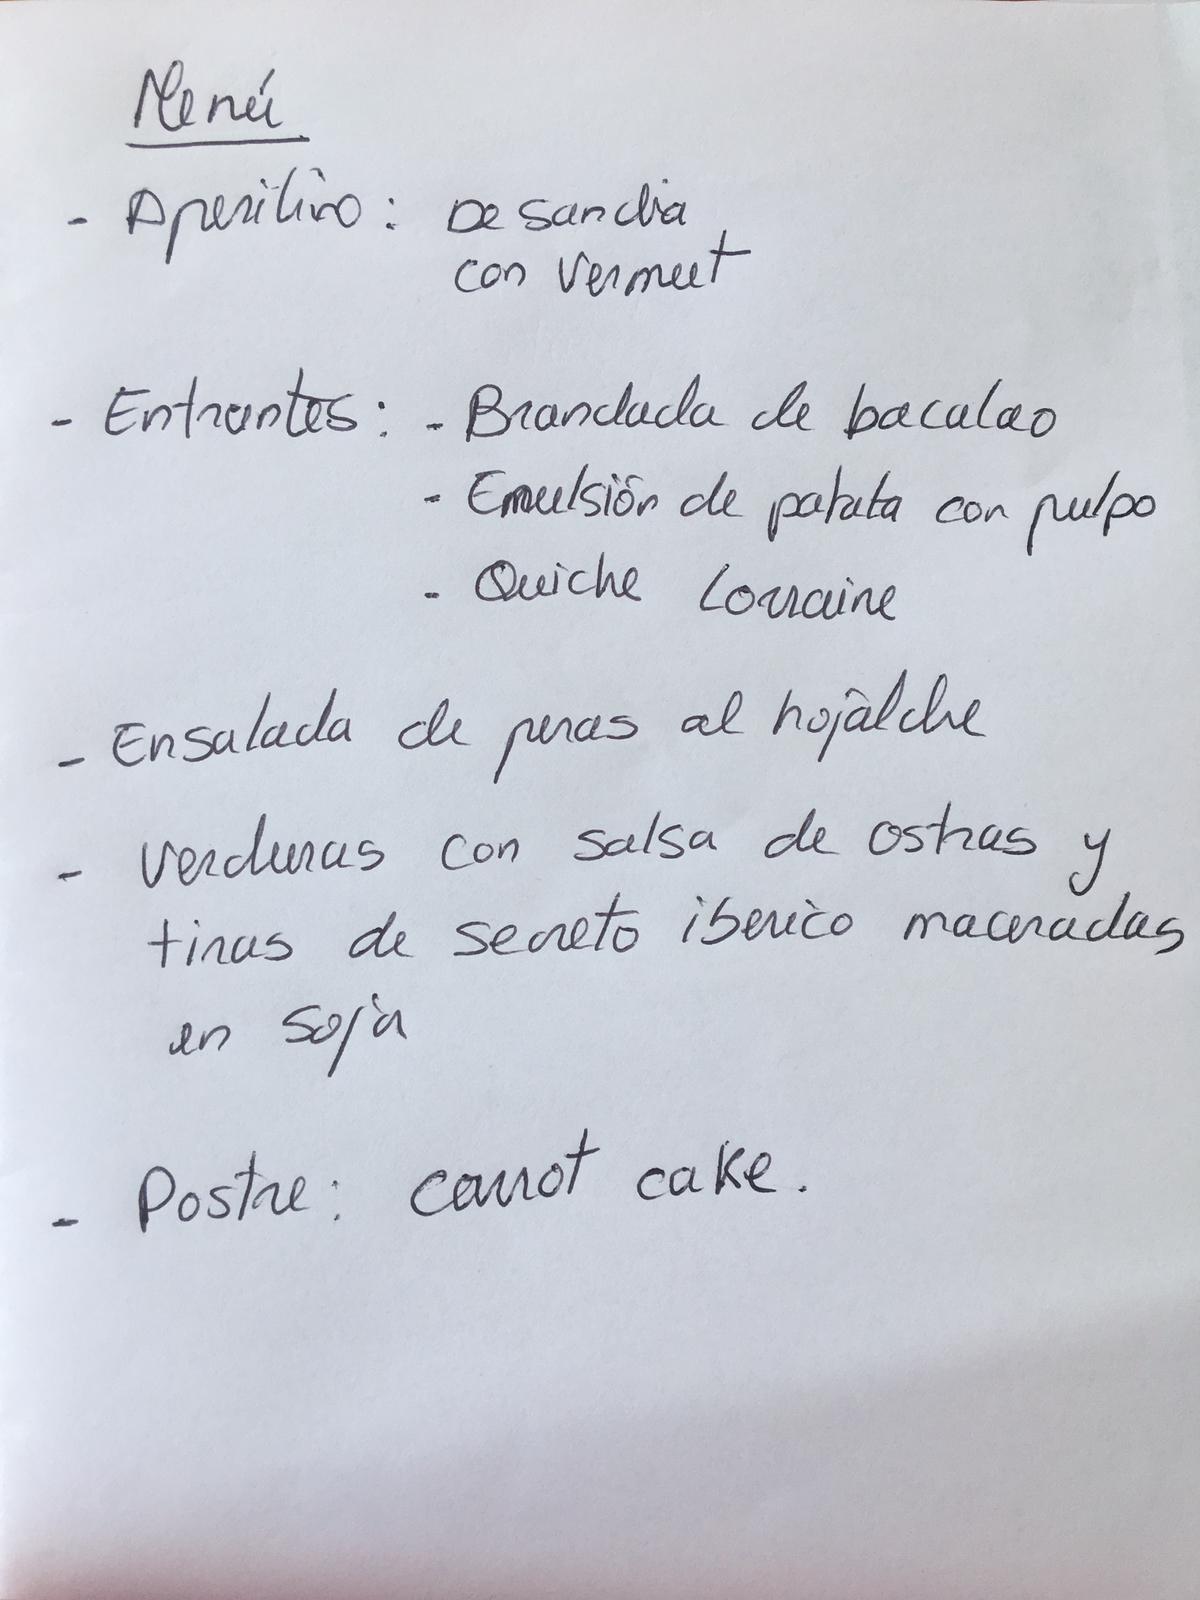 Menú
- Aperitivo: De sandia
con vermut
- Entrantes: - Brandada de bacalao
- Emulsión de patata con pulpo
- Quiche Lorraine
- Ensalada de peras al hojalche
- Verduras con salsa de ostras y
tiras de secreto iberico maceradas
en soja
- Postre: carrot cake.